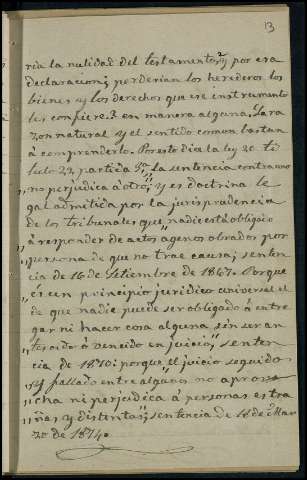 13
ria la nulidad del testamento, y por esa
declaracion, perderian los herederos los
bienes y los derechos que ese instrumento
les confiere en manera alguna. La ra
zon natural y el sentido comun bastan
á comprenderlo. Por esto dice la ley 20 tí
tulo 22, partida 3ª "la sentencia contra uno
no perjudica á otro", y es doctrina le
gal admitida por la jurisprudencia
de los tribunales que "nadie está obligado
á responder de actos agenos obrados por
persona de que no trae causa"; senten
cia de 16 de Setiembre de 1867. Porque
"es un principio juridico universal el
de que nadie puede ser obligado á entre
gar ni hacer cosa alguna sin ser an
tes oido y vencido en juicio", senten
cia de 1870: porque "el juicio seguido
y fallado entre algunos no aprove
cha ni perjudica á personas estra
ñas y distintas"; sentencia de 18 de Mar
zo de 1874.